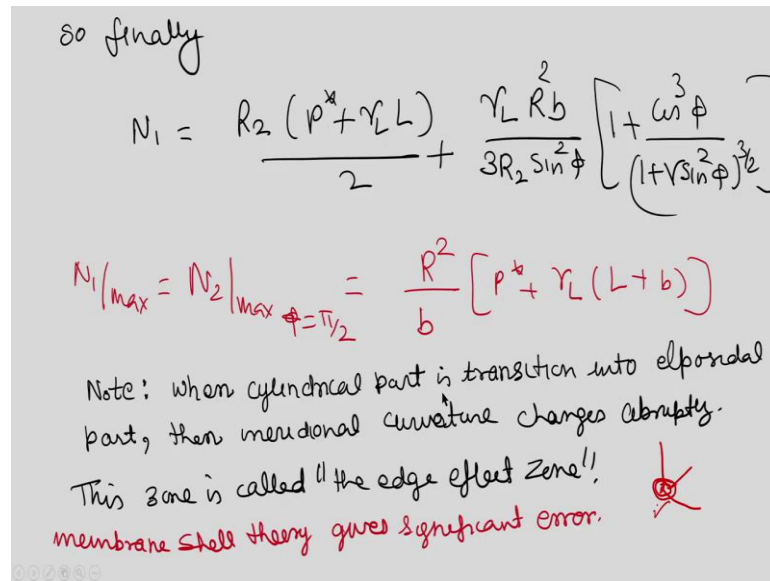 so finally
N₁ = R₂ (p* + γ_L L) / 2 + γ_L R² b / 3R₂ sin² φ [1 + cos³ φ / (1 + γ sin² φ)^3/2]
N₁|max = N₂|max φ = π/2 = R² / b [p* + γ_L (L + b)]
Note: when cylindrical part is transition into elposidal
part, then meridional curvature changes abrupty.
This zone is called "the edge effect zone".
membrane shell theory gives significant error.